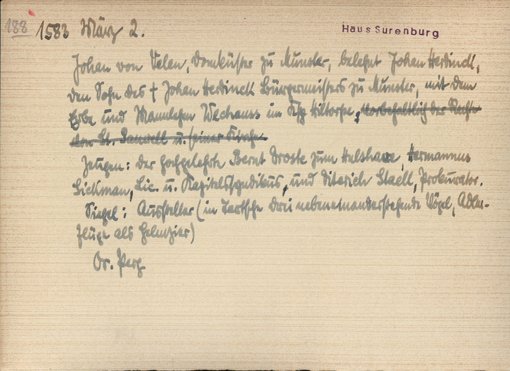 188 1583 März 2. Haus Surenburg
Johan von Velen, Domküster zu Münster, belehnt Johan Herdinck,
den Sohn des † Johan Herdinck Bürgermeisters zu Münster, mit dem
Erbe und Mannlehen Wechaus im Ksp Hiltorpe, vorbehaltlich der Rechte
von St. und seiner Kirche.
Zeugen: der hochgelehrte Bernt Droste zum Hulshave, Hermannus
Bickman, Lic. u. Kapitelsyndikus, und Diderich Staell, Prokurator.
Siegel: Aussteller (in Tartsche drei nebeneinanderstehende Vögel, Adler-
flug als Helmzier)
Or. Perg